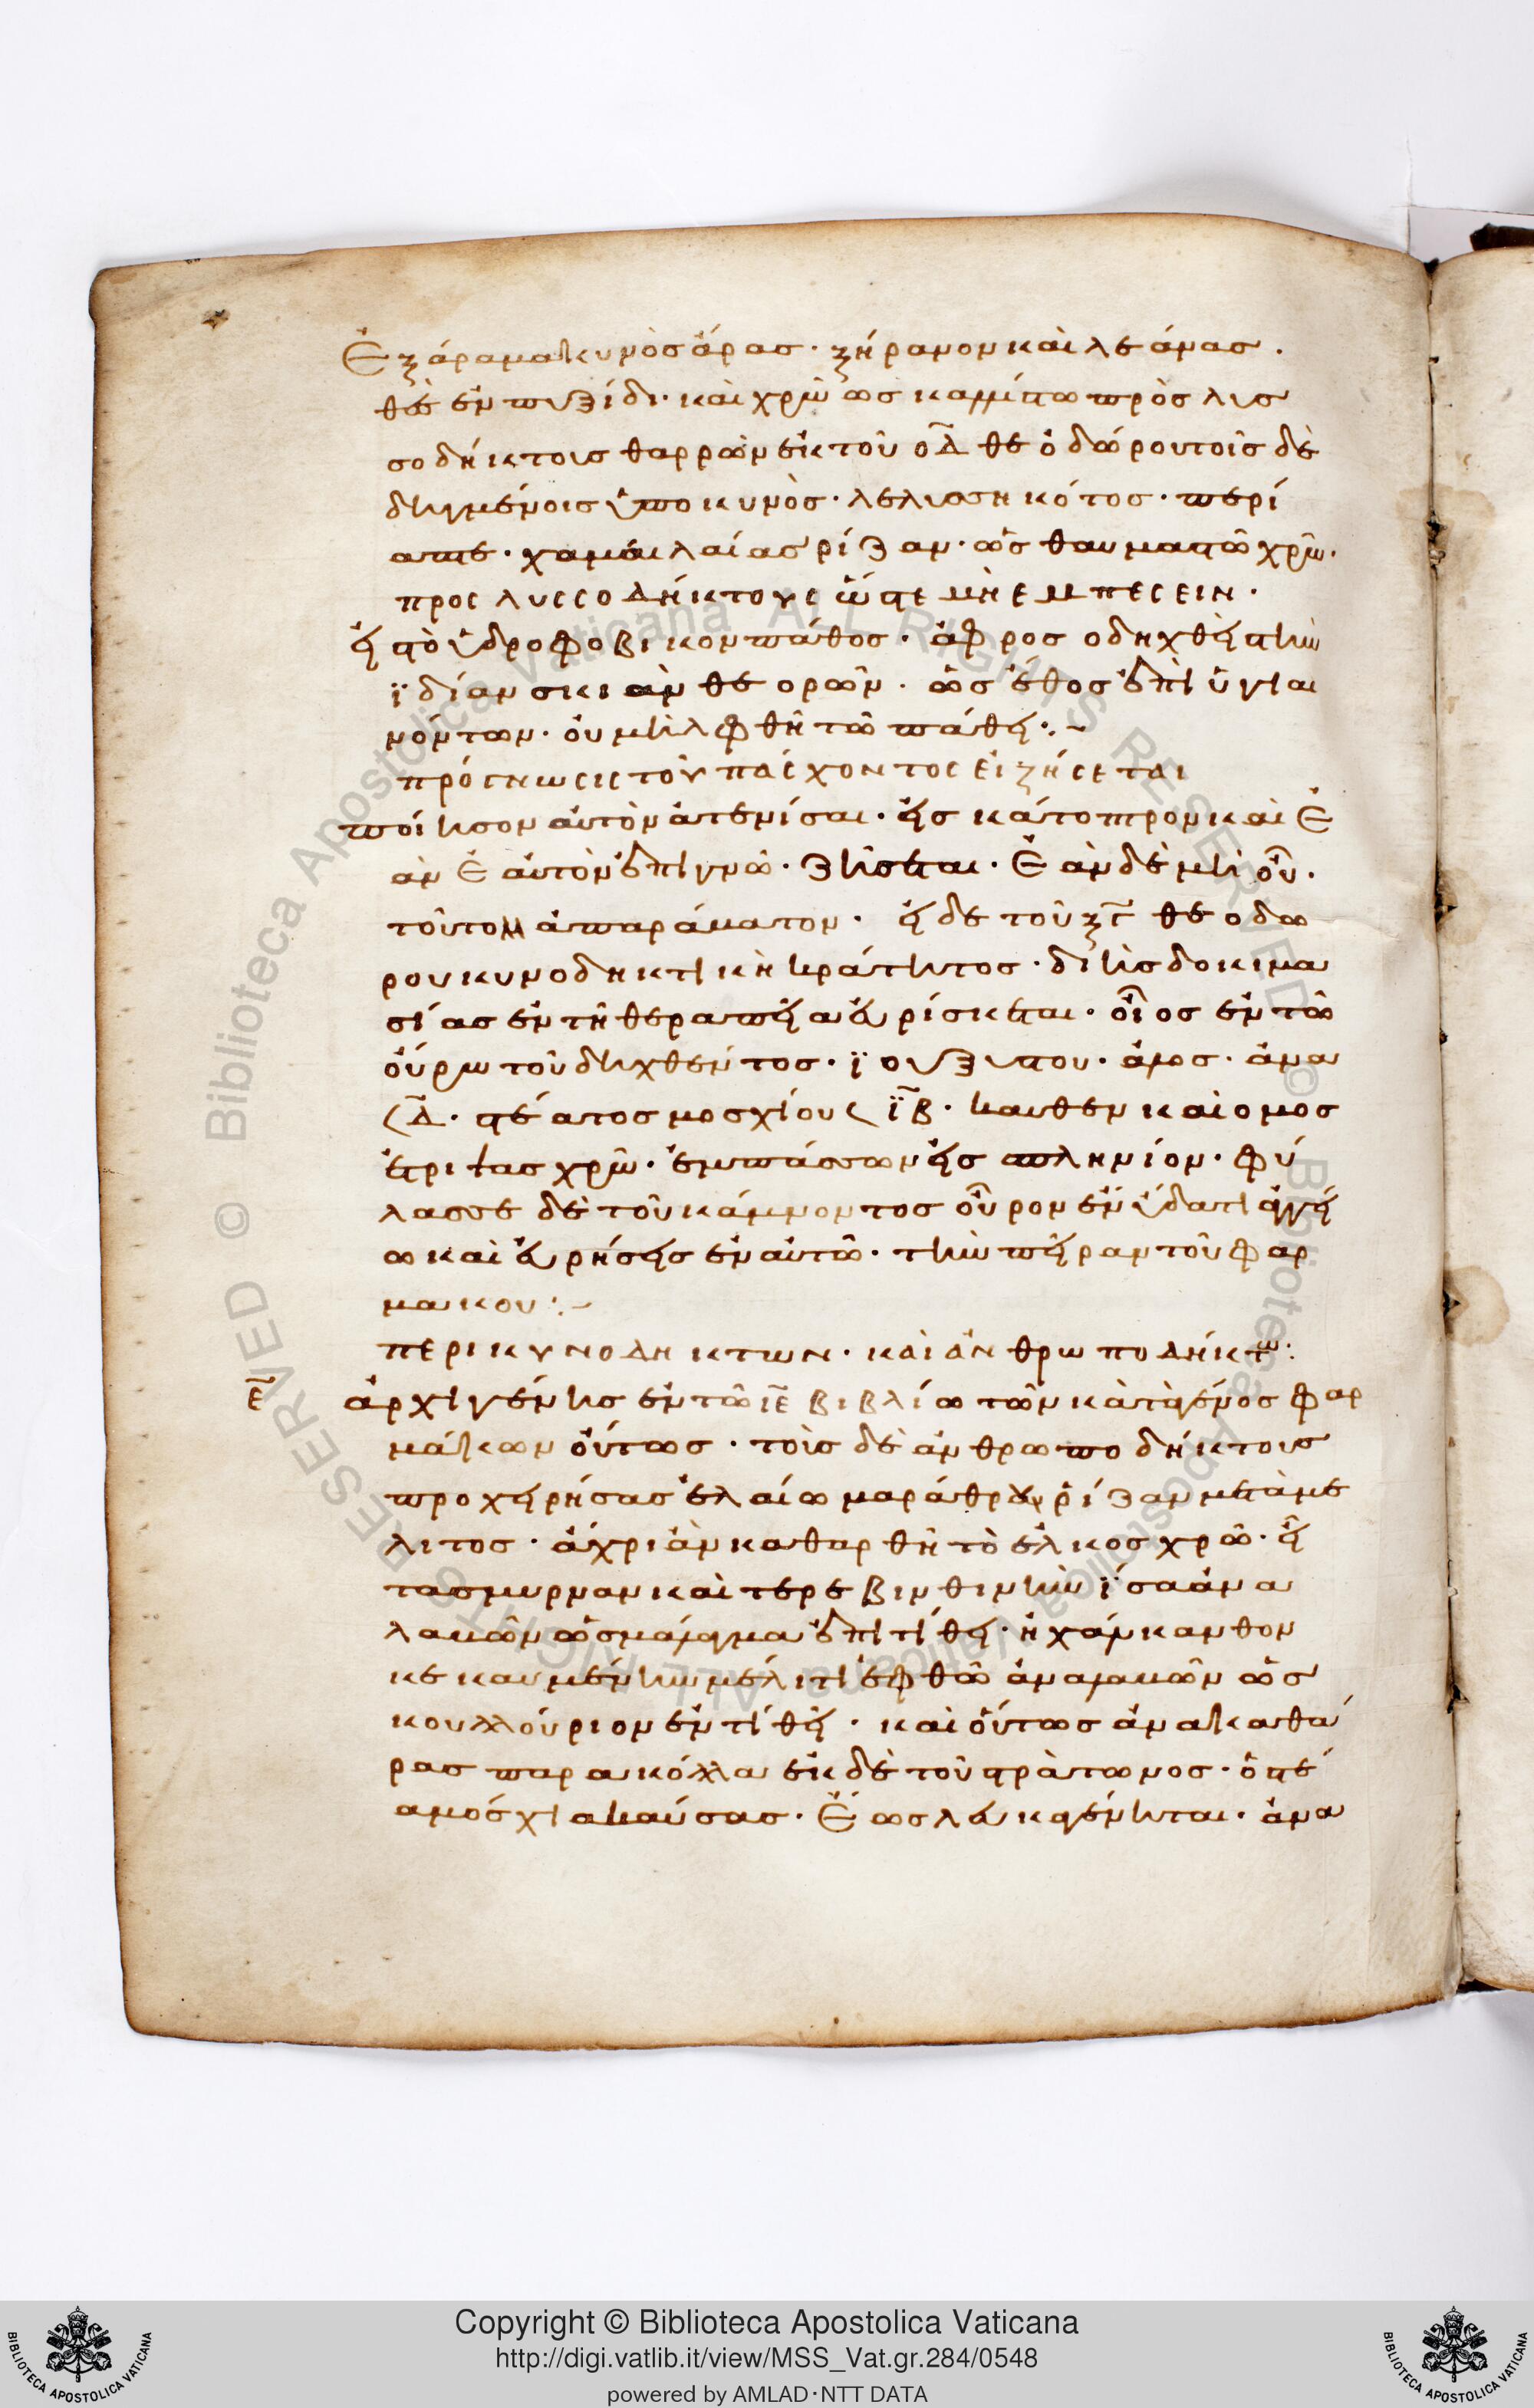 Ἐξάραμα κυνὸς ἄρας · ξήρανον καὶ λεάνας ·
θὲς ἐν πυξίδι · καὶ χρῶ ὡς καλλίστω πρὸς λυσ
σοδήκτους θαρρῶν ἐκ τοῦ ο̅δ̅ θεοδώρου τοῖς δὲ
δηγμένοις ὑπο κυνὸς · λελυσσηκότος · περί
απτε · χαμαιλαίας ρίζαν · ὡς θαυμαστῶ χρῶ ·
προς λυσσοδήκτους ὥστε μὴ ἐμπεσειν ·
εἰ τὸ ὑδροφοβικον πάθος · ἄφρος ὁ δηχθεὶς τὴν
ϊδίαν σκιὰν θεορῶν · ὡς ἔθος ἐπὶ ὑγιαι
νόντων · οὐ μὴ λφθῆ τῶ πάθει :~
πρόγνωσις τοῦ πάσχοντος εἰ ζήσεται
ποίησον αὐτὸν ἀτενίσαι · εἰς κάτοπτρον καὶ ἐ
ὰν ἑαυτὸν ἐπιγνῶ · ζήσεται · ἐὰν δὲ μὴ οὖ ·
τοῦτον ἀπαράματον · εἰ δε τοῦ ξ̅ϛ̅ θεοδω
ρου κυνοδηκτικὴ κράτητος · δι ῆς δοκιμα
σίας ἐν τῆ θεραπεία εὑρίσκεται · οἷος ἐν τῶ
οὔρω τοῦ δηχθέντος · ϊοῦ ξυστου · ἄλος · ἄνα
𐅻 δ̅ · στέατος μοσχίου 𐅻 ϊβ · καυθεν καὶ ομος
ἑτρίτας χρῶ · ἐμπάσσων εἰς σπληνίον · φύ
λασσε δὲ τοῦ κάμνοντος οὖρον ἐν ὕδατι ἀγγεί
ω καὶ εὑρήσεις ἐν αὐτῶ · τὴν πεῖραν τοῦ φαρ
μακου :~
περι κυνοδηκτων · καὶ ἀνθρωποδήκτω :
ε̅ ἀρχιγένης ἐν τῶ ι̅ε̅ βιβλίω τῶν κατὰ γένος φαρ
μάκων οὕτως · τοῖς δὲ ἀνθρωποδήκτοις
προχειρήσας ἐλαίω μαράθρου ῥίζαν μετὰ μέ
λιτος · ἄχρι ἂν καθαρθῆ τὸ ἕλκος χρῶ · εἶ
τα σμυρναν καὶ τερεβινθινην ϊσα ἀνα
λαβῶν ὡς μάλαγμα ἐπιτίθει · ἢ χάλκανθον
κεκαυμένην μέλιτι ἑφθῶ ἀναλαβῶν ὡς
κουλλούριον ἐντίθει · καὶ οὕτως ἀνακαθά
ρας παρακόλλα ἐκ δὲ τοῦ στράτωνος · ὀστέ
α μόσχια καύσας · ἕως λευκὰ γένηται · ἀνα